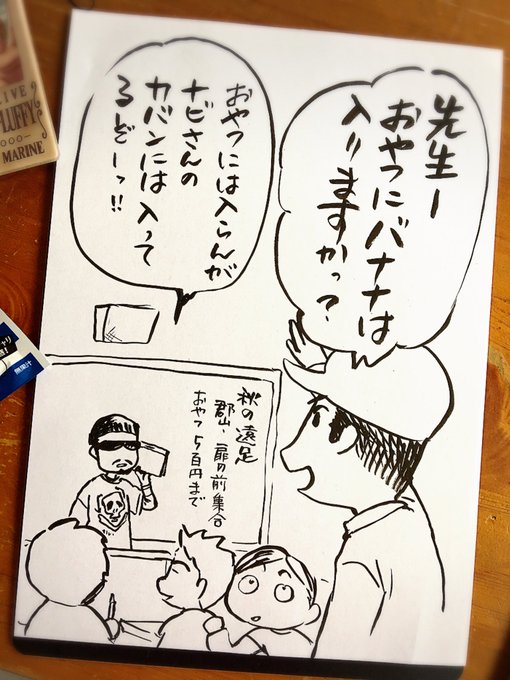 先生ー
おやつにバナナは
入りますかっ?
おやつには入らんが
ナビさんの
カバンには入って
るどーっ!!
秋の遠足
郡山、扉の前集合
おやつ 5百円まで
LIVE
FLUFFY
MARINE
無果汁